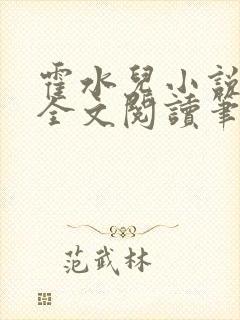 霍水兒小說
全文閱讀筆
范武林